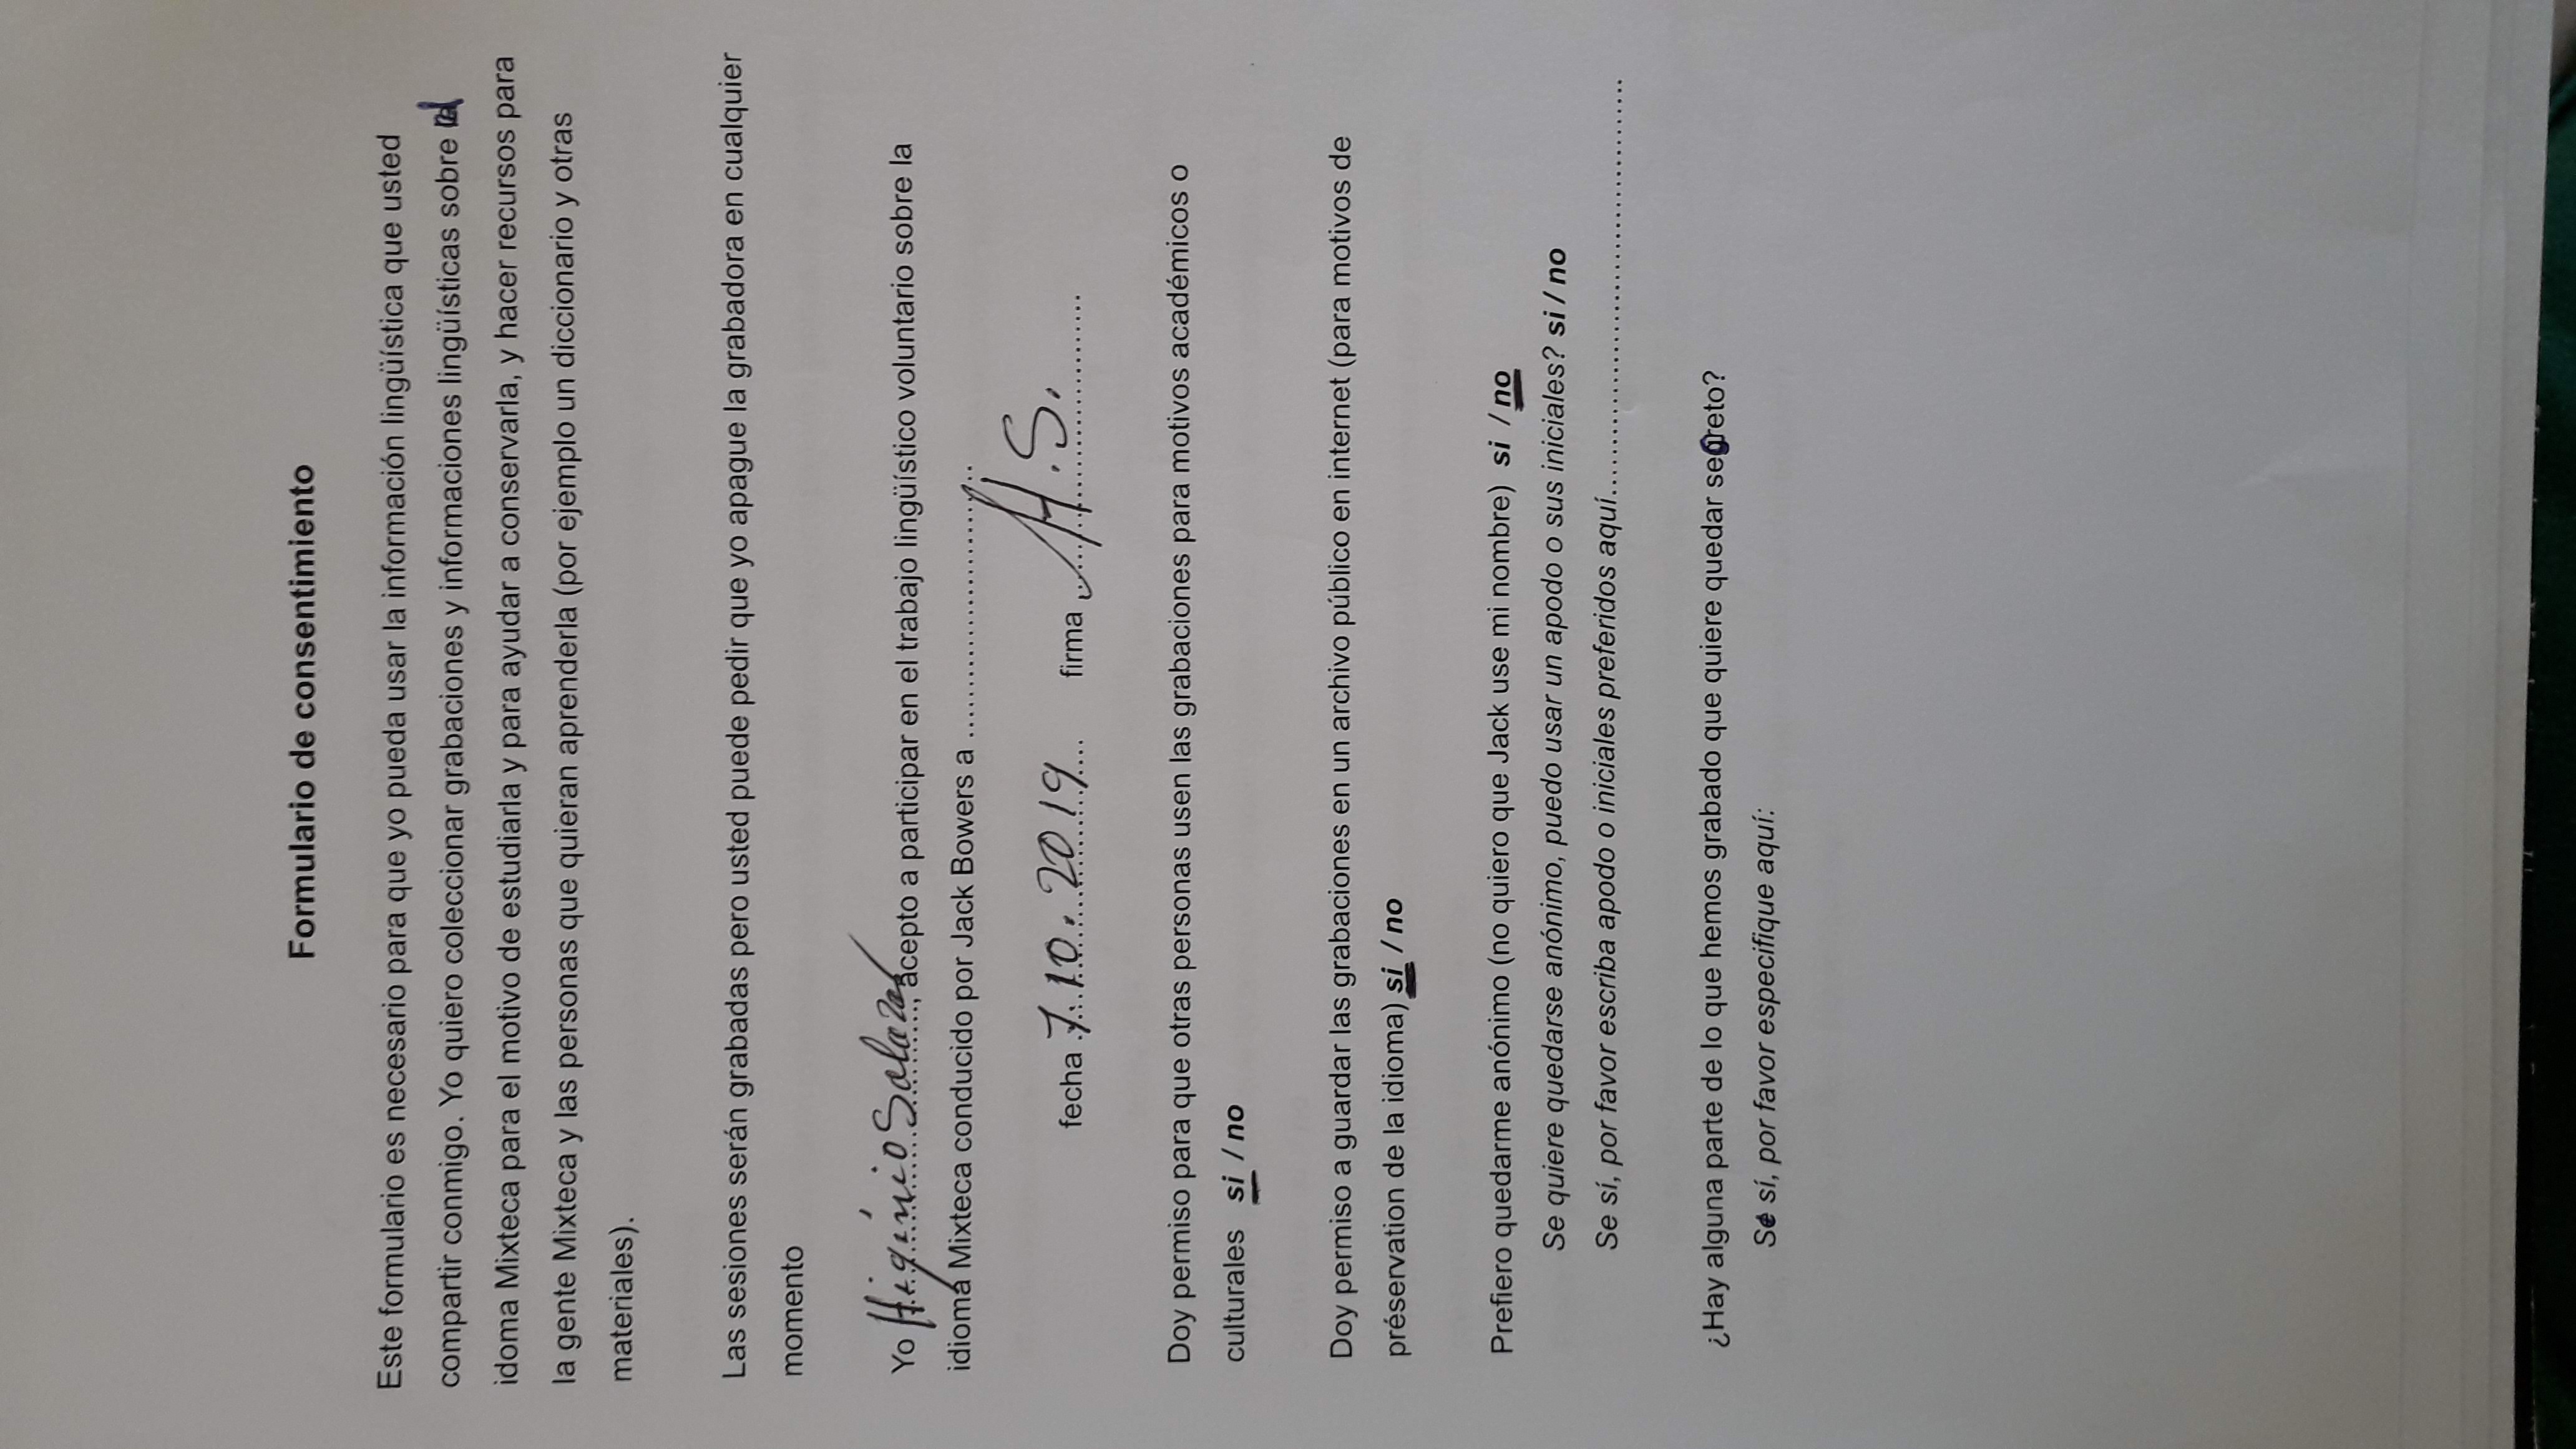 Formulario de consentimiento
Este formulario es necesario para que yo pueda usar la información lingüística que usted
compartir conmigo. Yo quiero coleccionar grabaciones y informaciones lingüísticas sobre el
idoma Mixteca para el motivo de estudiarla y para ayudar a conservarla, y hacer recursos para
la gente Mixteca y las personas que quieran aprenderla (por ejemplo un diccionario y otras
materiales).
Las sesiones serán grabadas pero usted puede pedir que yo apague la grabadora en cualquier
momento
Yo Higinio Salazar, acepto a participar en el trabajo lingüístico voluntario sobre la
idioma Mixteca conducido por Jack Bowers a ..............................
fecha 7.10.2019 firma H.S.
Doy permiso para que otras personas usen las grabaciones para motivos académicos o
culturales si / no
Doy permiso a guardar las grabaciones en un archivo público en internet (para motivos de
préservation de la idioma) si / no
Prefiero quedarme anónimo (no quiero que Jack use mi nombre) si / no
Se quiere quedarse anónimo, puedo usar un apodo o sus iniciales? si / no
Se sí, por favor escriba apodo o iniciales preferidos aquí..............................
¿Hay alguna parte de lo que hemos grabado que quiere quedar segreto?
Se sí, por favor especifique aquí: